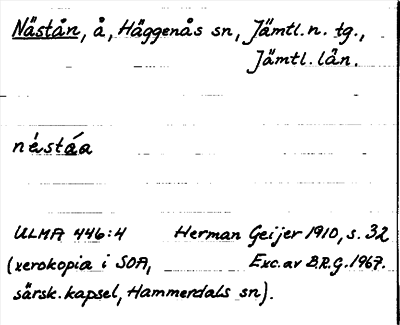 Nästån, å, Häggenås sn, Jämtl. n. tg.,
Jämtl. län.
ULMA 446:4 Herman Geijer 1910, s. 32
(xerokopia i SOA, Exc. av B.R.G. 1967.
särsk. kapsel, Hammerdals sn).